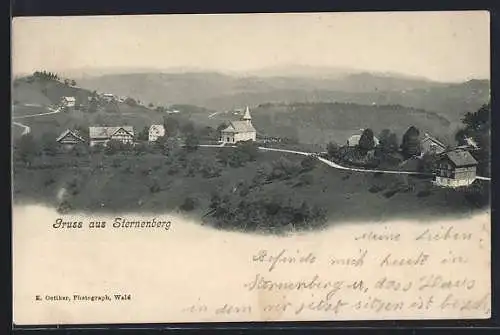 Gruss aus Sternenberg
Meine Lieben.
Befinde mich heute in
Sternenberg u. das Haus
in dem wir jetzt sitzen ist
E. Oetiker, Photograph, Wald